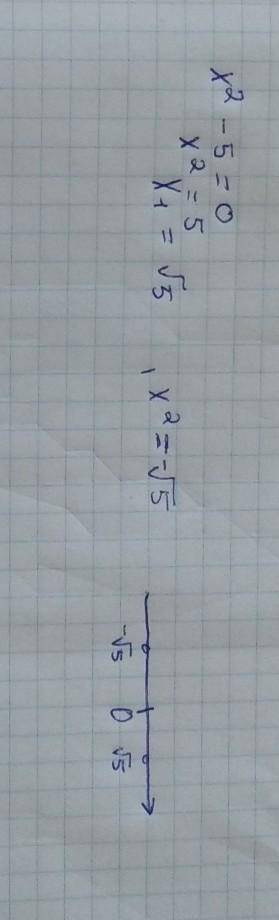 x² - 5 = 0
x² = 5
x₁ = √5 , x² = -√5
-√5 0 √5